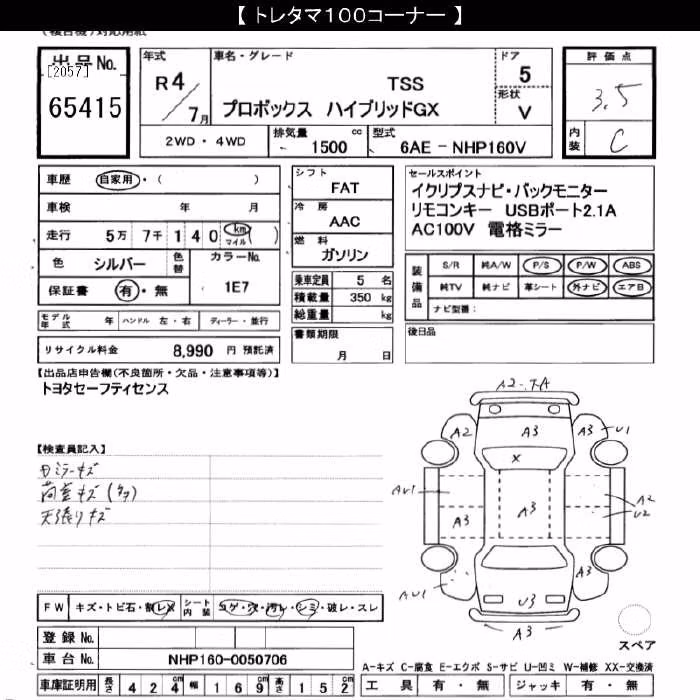 【 トレタマ100コーナー 】
(複合機)対応用紙
出品No.
[2057]
65415
年式
R4
7月
車名・グレード
TSS
プロボックス ハイブリッドGX
ドア
5
形状
V
評価点
3.5
内装
C
2WD・4WD
排気量
1500 cc
型式
6AE-NHP160V
車歴 自家用・( )
車検 年 月
走行 5万 7千 1 4 0 km マイル ( )
色 シルバー
色替
カラーNo.
1E7
保証書 有・無
モデル年式 年 ハンドル 左・右 ディーラー・並行
リサイクル料金 8,990 円 預託済
シフト
FAT
冷房
AAC
燃料
ガソリン
乗車定員 5 名
積載量 350 kg
総重量 kg
書類期限
月 日
セールスポイント
イクリプスナビ・バックモニター
リモコンキー USBポート2.1A
AC100V 電格ミラー
装備品
S/R 純A/W P/S P/W ABS
純TV 純ナビ 革シート 外ナビ エアB
ナビ型番:
後日品
【出品店申告欄(不良箇所・欠品・注意事項等)】
トヨタセーフティセンス
【検査員記入】
ミラーキズ
荷室キズ(多)
天張りキズ
A2
A3
A3
U1
X
AU1
A3
A3
A2
U2
AU1
U3
A3
A3
スペア
FW キズ・トビ石・割レ・X
シート内装 コゲ・穴・汚レ・シミ・破レ・スレ
登録No.
車台No. NHP160-0050706
車庫証明用 長さ 4 2 4 cm 幅 1 6 9 cm 高さ 1 5 2 cm
A-キズ C-腐食 E-エクボ S-サビ U-凹ミ W-補修 XX-交換済
工具 有・無 ジャッキ 有・無